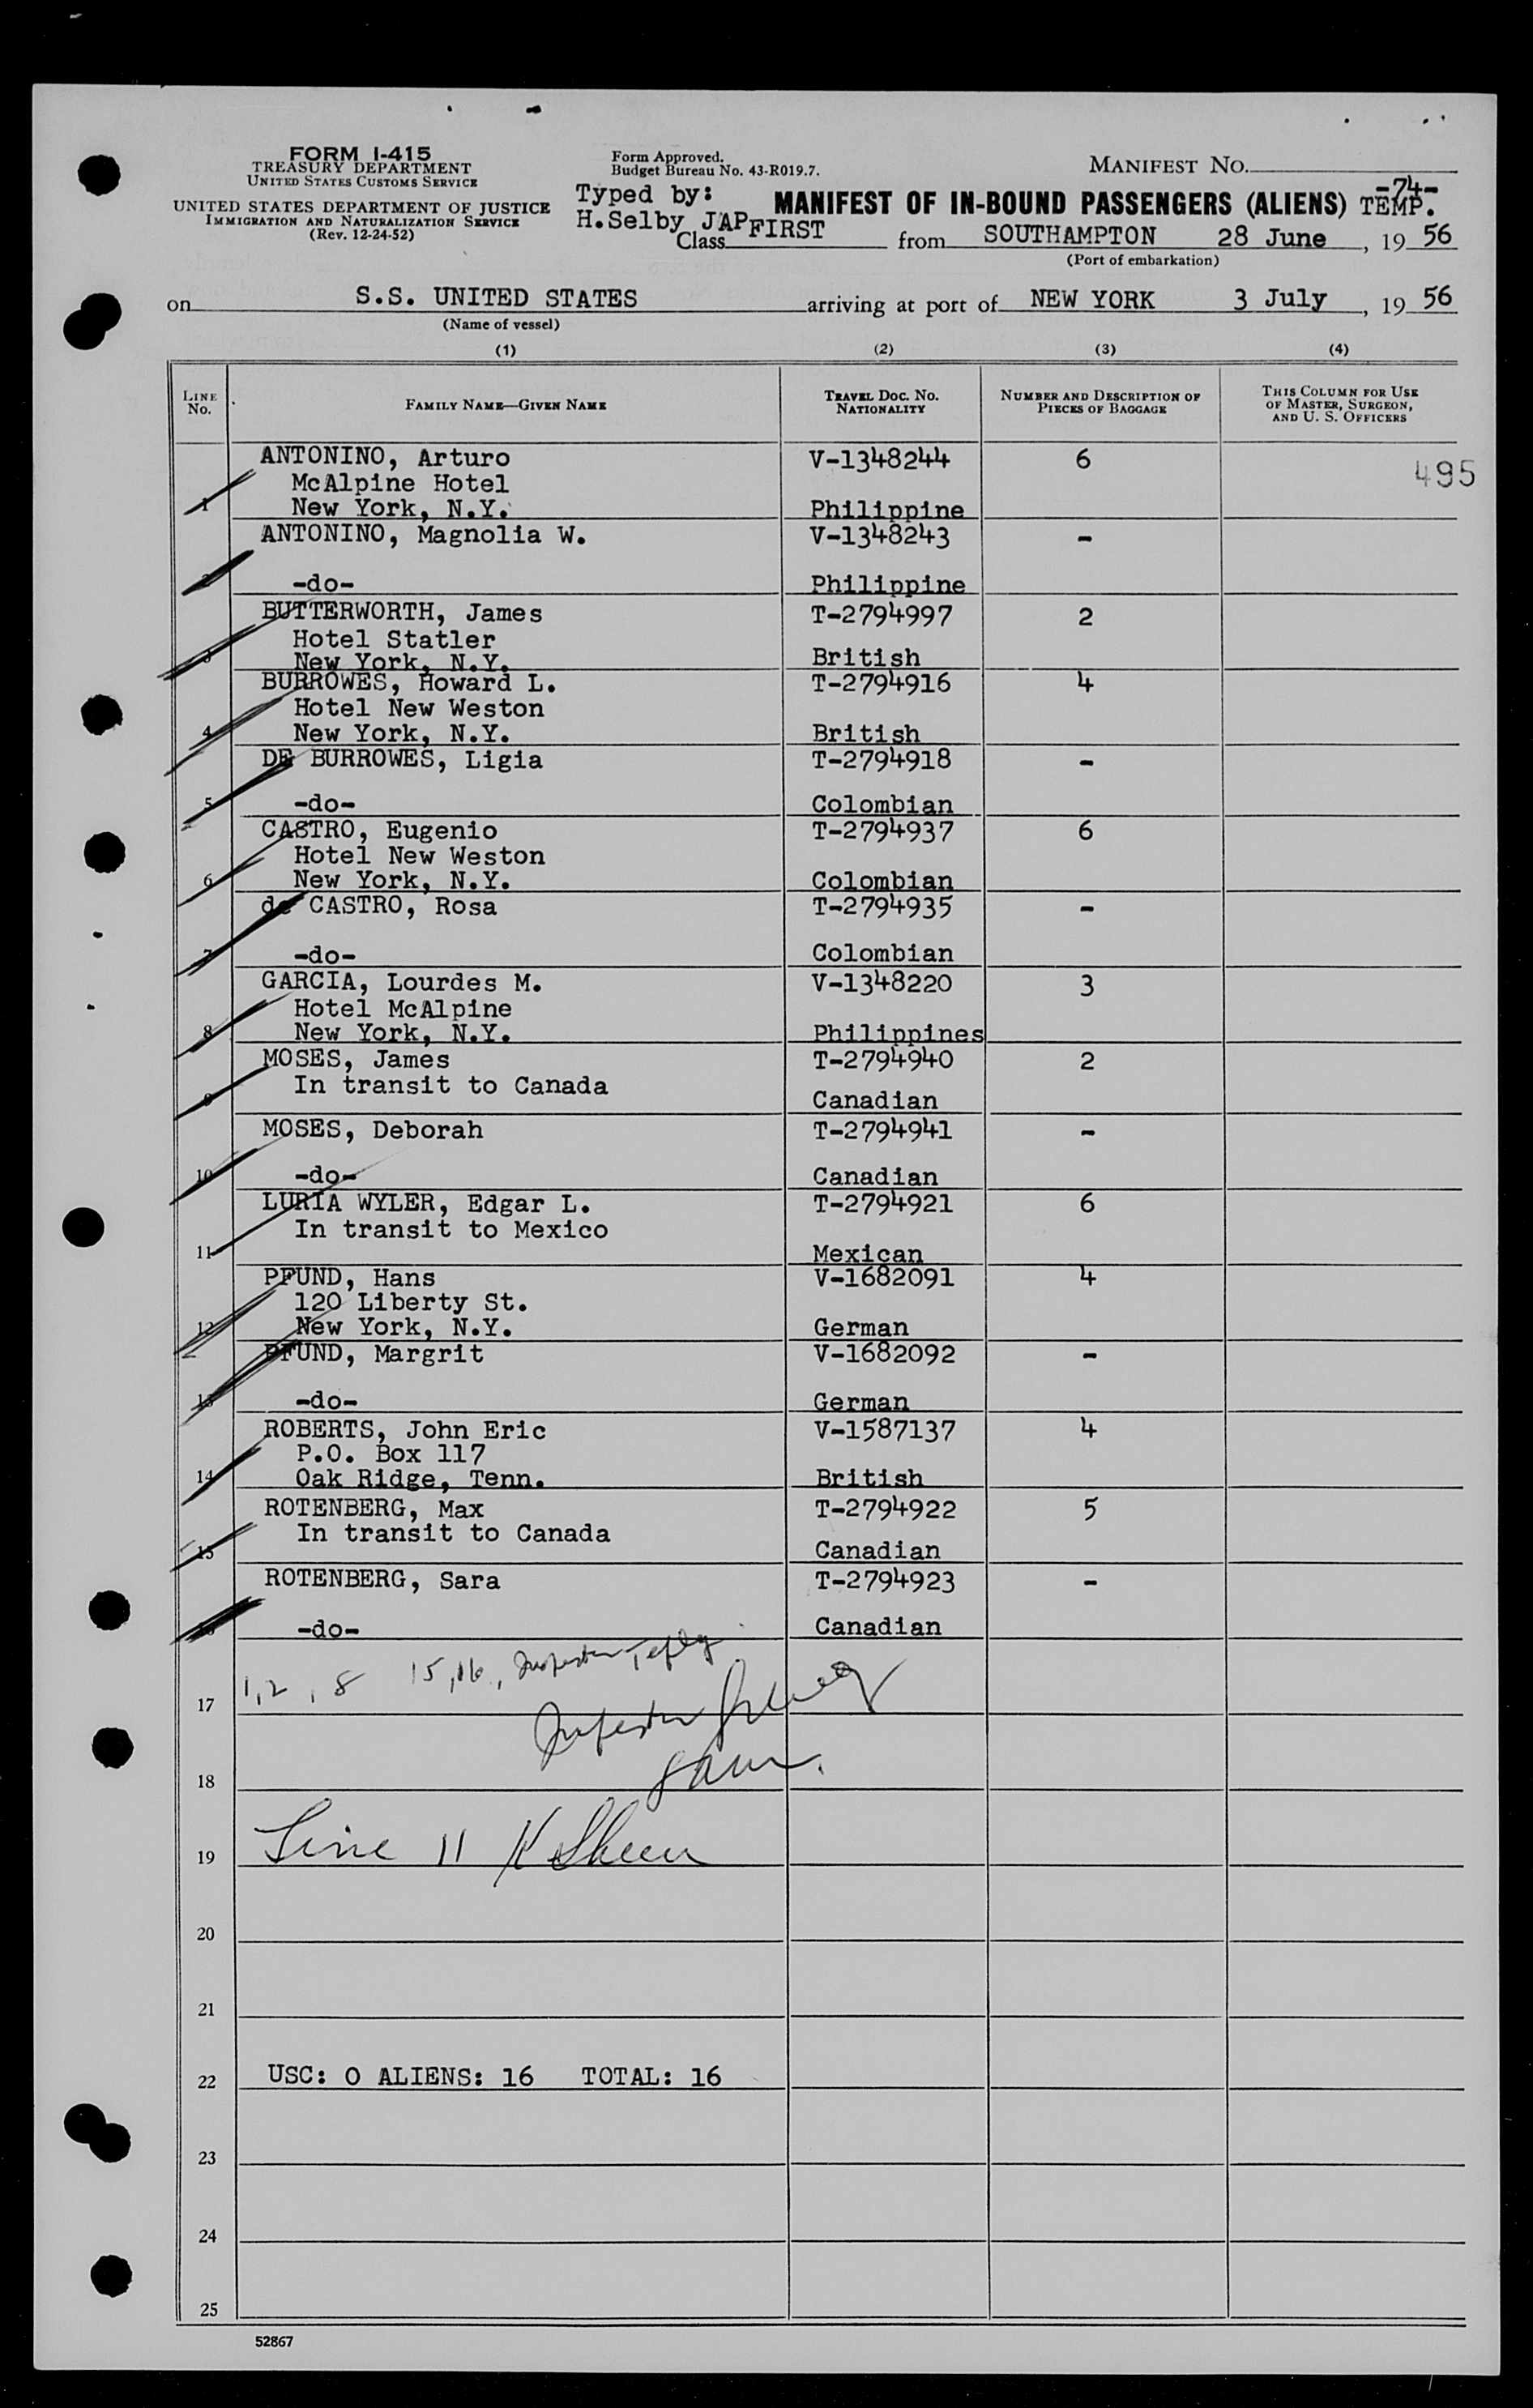 FORM I-415
TREASURY DEPARTMENT
UNITED STATES CUSTOMS SERVICE
UNITED STATES DEPARTMENT OF JUSTICE
IMMIGRATION AND NATURALIZATION SERVICE
(Rev. 12-24-52)
Form Approved.
Budget Bureau No. 43-R019.7.
MANIFEST NO.
-74-
Typed by: MANIFEST OF IN-BOUND PASSENGERS (ALIENS) TEMP.
H.Selby JAP
Class FIRST from SOUTHAMPTON 28 June, 19 56
(Port of embarkation)
on S.S. UNITED STATES arriving at port of NEW YORK 3 July, 19 56
(Name of vessel)
(1) (2) (3) (4)
LINE NO. FAMILY NAME—GIVEN NAME TRAVEL DOC. NO. NATIONALITY NUMBER AND DESCRIPTION OF PIECES OF BAGGAGE THIS COLUMN FOR USE OF MASTER, SURGEON, AND U. S. OFFICERS
ANTONINO, Arturo V-1348244 6
McAlpine Hotel 495
1 New York, N.Y. Philippine
ANTONINO, Magnolia W. V-1348243 -
2 -do- Philippine
BUTTERWORTH, James T-2794997 2
Hotel Statler
3 New York, N.Y. British
BURROWES, Howard L. T-2794916 4
Hotel New Weston
4 New York, N.Y. British
DE BURROWES, Ligia T-2794918 -
5 -do- Colombian
CASTRO, Eugenio T-2794937 6
Hotel New Weston
6 New York, N.Y. Colombian
de CASTRO, Rosa T-2794935 -
7 -do- Colombian
GARCIA, Lourdes M. V-1348220 3
Hotel McAlpine
8 New York, N.Y. Philippines
MOSES, James T-2794940 2
In transit to Canada
9 Canadian
MOSES, Deborah T-2794941 -
10 -do- Canadian
LURIA WYLER, Edgar L. T-2794921 6
In transit to Mexico
11 Mexican
PFUND, Hans V-1682091 4
120 Liberty St.
12 New York, N.Y. German
PFUND, Margrit V-1682092 -
13 -do- German
ROBERTS, John Eric V-1587137 4
P.O. Box 117
14 Oak Ridge, Tenn. British
ROTENBERG, Max T-2794922 5
In transit to Canada
15 Canadian
ROTENBERG, Sara T-2794923 -
16 -do- Canadian
1, 2, 8 15, 16, Inspector
17 Inspector
18
19 Line 11
20
21
22 USC: 0 ALIENS: 16 TOTAL: 16
23
24
25
52867